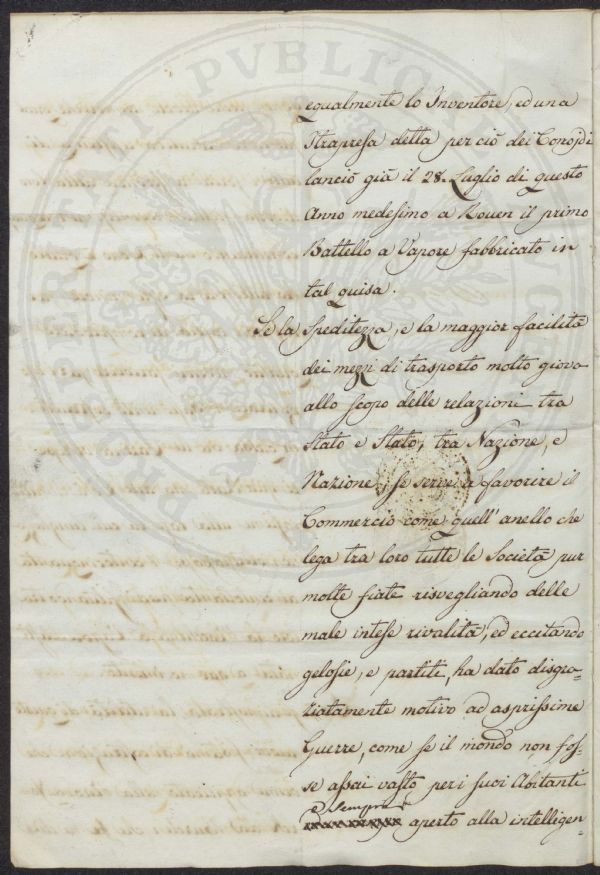 egualmente lo Inventore, ed una
Strapresa detta per ciò dei Conojdi
lanciò già il 28. Luglio di questo
Anno medesimo a Rouen il primo
Battello a Vapore fabbricato in
tal guisa.
Se la Speditezza, e la maggior facilità
dei mezzi di trasporto molto giova
allo scopo delle relazioni tra
Stato e Stato, tra Nazione, e
Nazione, se serve a favorire il
Commercio come quell' anello che
lega tra loro tutte le Società pur
molte fiate risvegliando delle
male intese rivalità, ed eccitando
gelosie, e partiti, ha dato disgra-
ziatamente motivo ad asprissime
Guerre, come se il mondo non fos-
se assai vasto per i suoi Abitanti
e sempre
aperto alla intelligen-